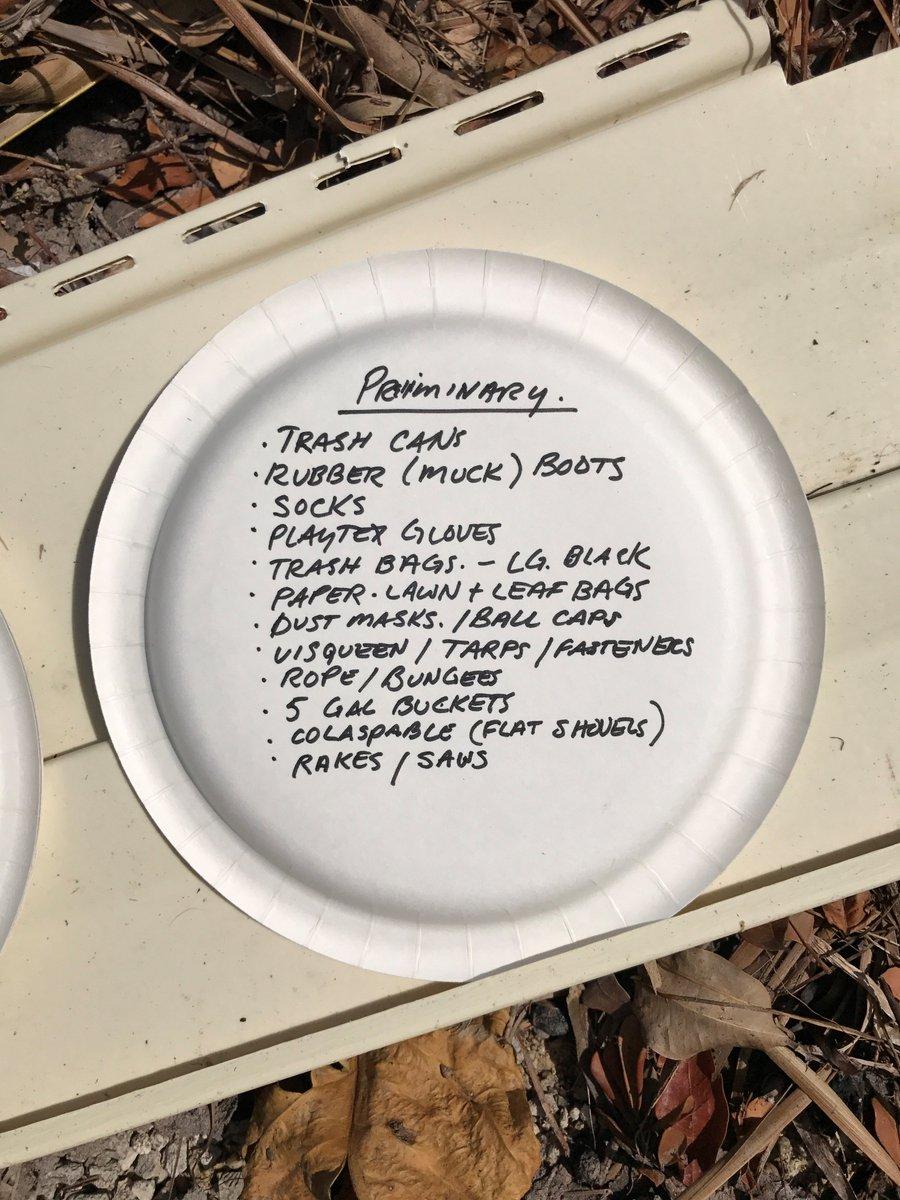 PRELIMINARY.
· TRASH CANS
· RUBBER (MUCK) BOOTS
· SOCKS
· PLAYTEX GLOVES
· TRASH BAGS. – LG. BLACK
· PAPER · LAWN + LEAF BAGS
· DUST MASKS. / BALL CAPS
· VISQUEEN / TARPS / FASTENERS
· ROPE / BUNGEES
· 5 GAL BUCKETS
· COLASPABLE (FLAT SHOVELS)
· RAKES / SAWS